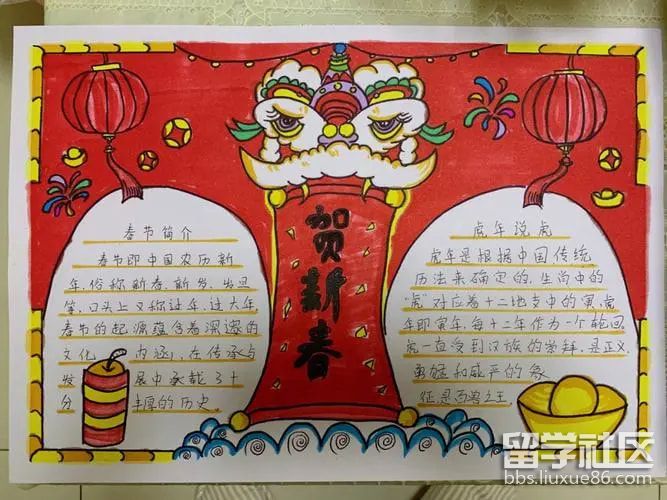 春节简介
春节即中国农历新
年,俗称新春、新岁、岁旦
等,口头上又称过年、过大年,
春节的起源蕴含着深邃的
文化 内涵,在传承与
发 展中承载了十
分 丰厚的历史。
贺新春
虎年说虎
虎年是根据中国传统
历法来确定的,生肖中的
"虎"对应着十二地支中的寅,虎
年即寅年,每十二年作为一个轮回,
虎一直受到汉族的崇拜,是正义、
勇猛和威严的象
征,是百兽之王
留学社区
bbs.liuxue86.com